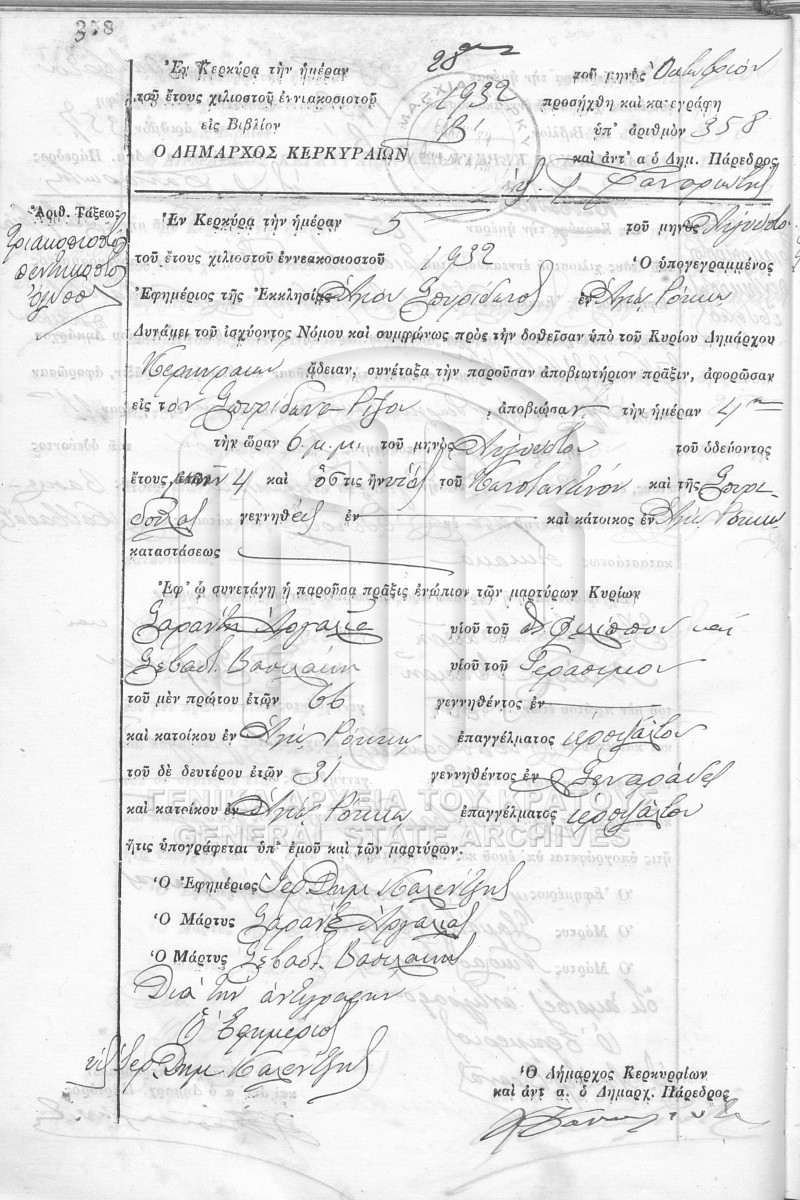 358
Ἐν Κερκύρᾳ τὴν ἡμέραν 28ην τοῦ μηνὸς Ὀκτωβρίου
τοῦ ἔτους χιλιοστοῦ ἐννιακοσιοτοῦ 1932 προσήχθη καὶ κατεγράφη
εἰς Βιβλίον Β' ὑπ' ἀριθμὸν 358
Ο ΔΗΜΑΡΧΟΣ ΚΕΡΚΥΡΑΙΩΝ καὶ ἀντ' α ὁ Δημ. Πάρεδρος
Ἀριθ. Τάξεως
Τριακοσιοστὸ
πεντηκοστὸ
ὄγδοο
Ἐν Κερκύρᾳ τὴν ἡμέραν 5 τοῦ μηνὸς Αὐγούστου
τοῦ ἔτους χιλιοστοῦ ἐννεακοσιοστοῦ 1932 Ὁ ὑπογεγραμμένος
Ἐφημέριος τῆς Ἐκκλησίας Ἁγίου Σπυρίδωνος ἐν Ἁγίς Ρόκκω
Δυνάμει τοῦ ἰσχύοντος Νόμου καὶ συμφώνως πρὸς τὴν δοθεῖσαν ὑπὸ τοῦ Κυρίου Δημάρχου
Κερκυραίων ἄδειαν, συνέταξα τὴν παροῦσαν ἀποβιωτήριον πρᾶξιν, ἀφορῶσαν
εἰς τον Σπυρίδωνα Ρίζον, ἀποβιώσαν τὴν ἡμέραν 4ην
τὴν ὥραν 6 μ.μ. τοῦ μηνὸς Αὐγούστου τοῦ ὁδεύοντος
ἔτους, ἐτῶν 4 καὶ ὅστις ἦν υἱὸς τοῦ Κωνσταντίνου καὶ τῆς Σπυρι-
δούλας γεννηθεὶς ἐν καὶ κάτοικος ἐν Ἁγίς Ρόκκω
καταστάσεως
Ἐφ' ᾧ συνετάγη ἡ παροῦσα πρᾶξις ἐνώπιον τῶν μαρτύρων Κυρίων
Σαράντη υἱοῦ τοῦ Φιλίππου καὶ
Σεβαστ. Βασιλάκη υἱοῦ τοῦ Γερασίμου
τοῦ μὲν πρώτου ἐτῶν 66 γεννηθέντος ἐν
καὶ κατοίκου ἐν Ἁγίς Ρόκκω ἐπαγγέλματος ἱεροψάλτου
τοῦ δὲ δευτέρου ἐτῶν 31 γεννηθέντος ἐν Σιναράδες
καὶ κατοίκου ἐν Ἁγίς Ρόκκω ἐπαγγέλματος ἱεροψάλτου
ΓΕΝΙΚΑ ΑΡΧΕΙΑ ΤΟΥ ΚΡΑΤΟΥΣ
GENERAL STATE ARCHIVES
ἥτις ὑπογράφεται ὑπ' ἐμοῦ καὶ τῶν μαρτύρων.
Ὁ Ἐφημέριος Ἱερ. Δημ. Καλεντζῆς
Ὁ Μάρτυς Σαράντης
Ὁ Μάρτυς Σεβαστ. Βασιλάκης
Διὰ τὴν ἀντιγραφὴν
Ὁ Ἐφημέριος
Ἱερ. Δημ. Καλεντζῆς
Ὁ Δήμαρχος Κερκυραίων
καὶ ἀντ α. ὁ Δημαρχ. Πάρεδρος